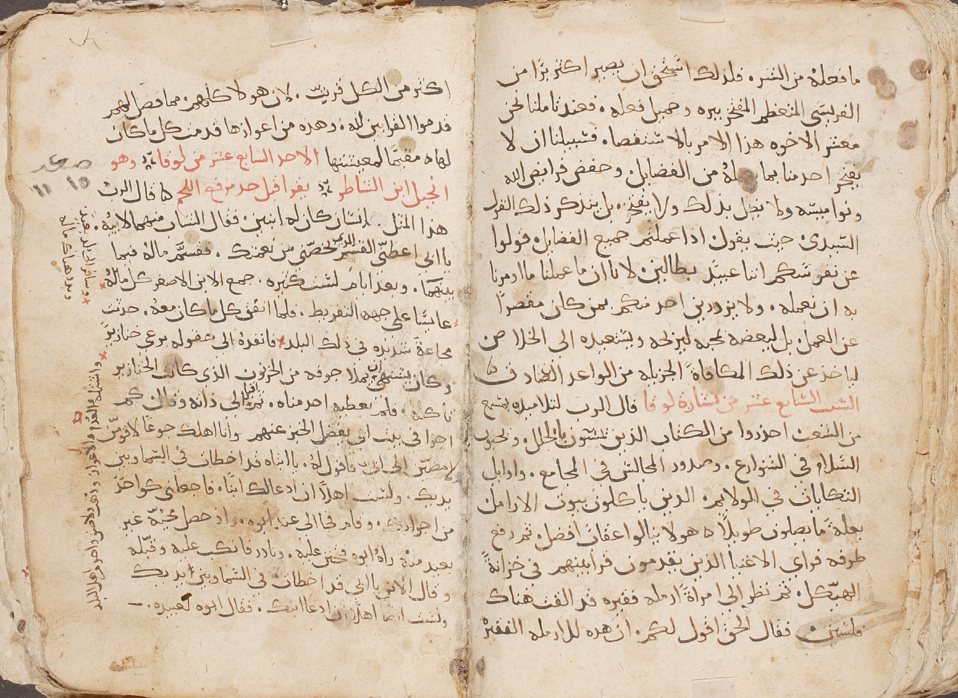 ما فعله من الشر. فلذلك استحق ان يصير اكثر برًا من
الفريسي المتعظم المفتخر ببره وجميل فعله. فعند تاملنا نحن
معشر الاخوه هذا الامر بالاستقصا. فسبيلنا ان لا
يفتخر احد منا بما يعمله من الفضايل وحفض فرايض الله
ونواميسه ولا يخل بذلك ولا يفتخر. بل يتذكر ذلك القول
السيدي حيث يقول اذا عملتم جميع الفضايل قولوا
عن نفوسكم اننا عبيد بطالين لاننا ان ما عملنا ما امرنا
به ان نعمله. ولا يزدرين احد منكم بمن كان مقصرًا
عن العمل بل ليعضه بمحبه ليربحه ويستعيده الى الخلاص
لياخذ عن ذلك المكافاة الجزيله من الواعد الصادق
السبت السابع عشر من بشارة لوقا قال الرب لتلاميذه يسمع
من الشعب احذروا من الكتاب الذين يمشون بالحلل. ويحبون
السلام في الشوارع. وصدور المجالس في المجامع. واوايل
التكايات في الولايم. الذين ياكلون بيوت الارامل
بعلة ما يصلون طويلًا هولا ينالوا عقاب افضل. ثم رفع
طرفه فراي الاغنيا الذين يقدمون قرابينهم في خزانة
الهيكل. ثم نظر الى امراة ارمله فقيره قد القت هناك
فلسين. فقال الحق اقول لكم. ان هذه الارمله الفقيرة
اكثر من الكل قربت. لان هولا كلهم مما فضل لهم
قدموا القرابين لله. وهذه من اعوازها قدمت كل ما كان
لها مقيمًا لمعيشتها الاحد السابع عشر من لوقا وهو
انجيل ابن الشاطر يقرا قبل حد مرفع اللحم قال الرب
هذا المثل. انسان كان له ابنين. فقال الشاب منهما لابيه.
يا ابي اعطني القسم الذي يخصني من نعمتك. فقسم ماله فيما
بينهما. وبعد ايام ليست كثيره. جمع الابن الاصغر كل ماله
عايشًا على جهة التفريط. فلما انفق كل ما كان معه. حدثت
مجاعة شديده في ذلك البلد فانفذه الى حقوله يرعى خنازير
وكان يشتهي ان يملا جوفه من الخرنوب الذي كانت الخنازير
تاكله. فلم يعطيه احد مناه. ثم اقبل الى ذاته وقال كم
اجرا في بيت ابي يفضل الخبز عنهم وانا اهلك جوعًا لاقومن
لامضين الى ابي واقول له. يا ابتاه قد اخطات في السما وبين
يديك. ولست اهلًا ان ادعا لك ابنا. فاجعلني كواحد
من اجراك. وقام فجا الى عند ابوه. واذ حصل محبه غير
بعيد منه راه ابوه فتحنن عليه. وبادر فانكب عليه وقبله
وقال الابن يا ابي قد اخطات في السما وبين يديك
ولست ايضا اهلًا ان ادعا ابنك. فقال ابوه لعبيده.